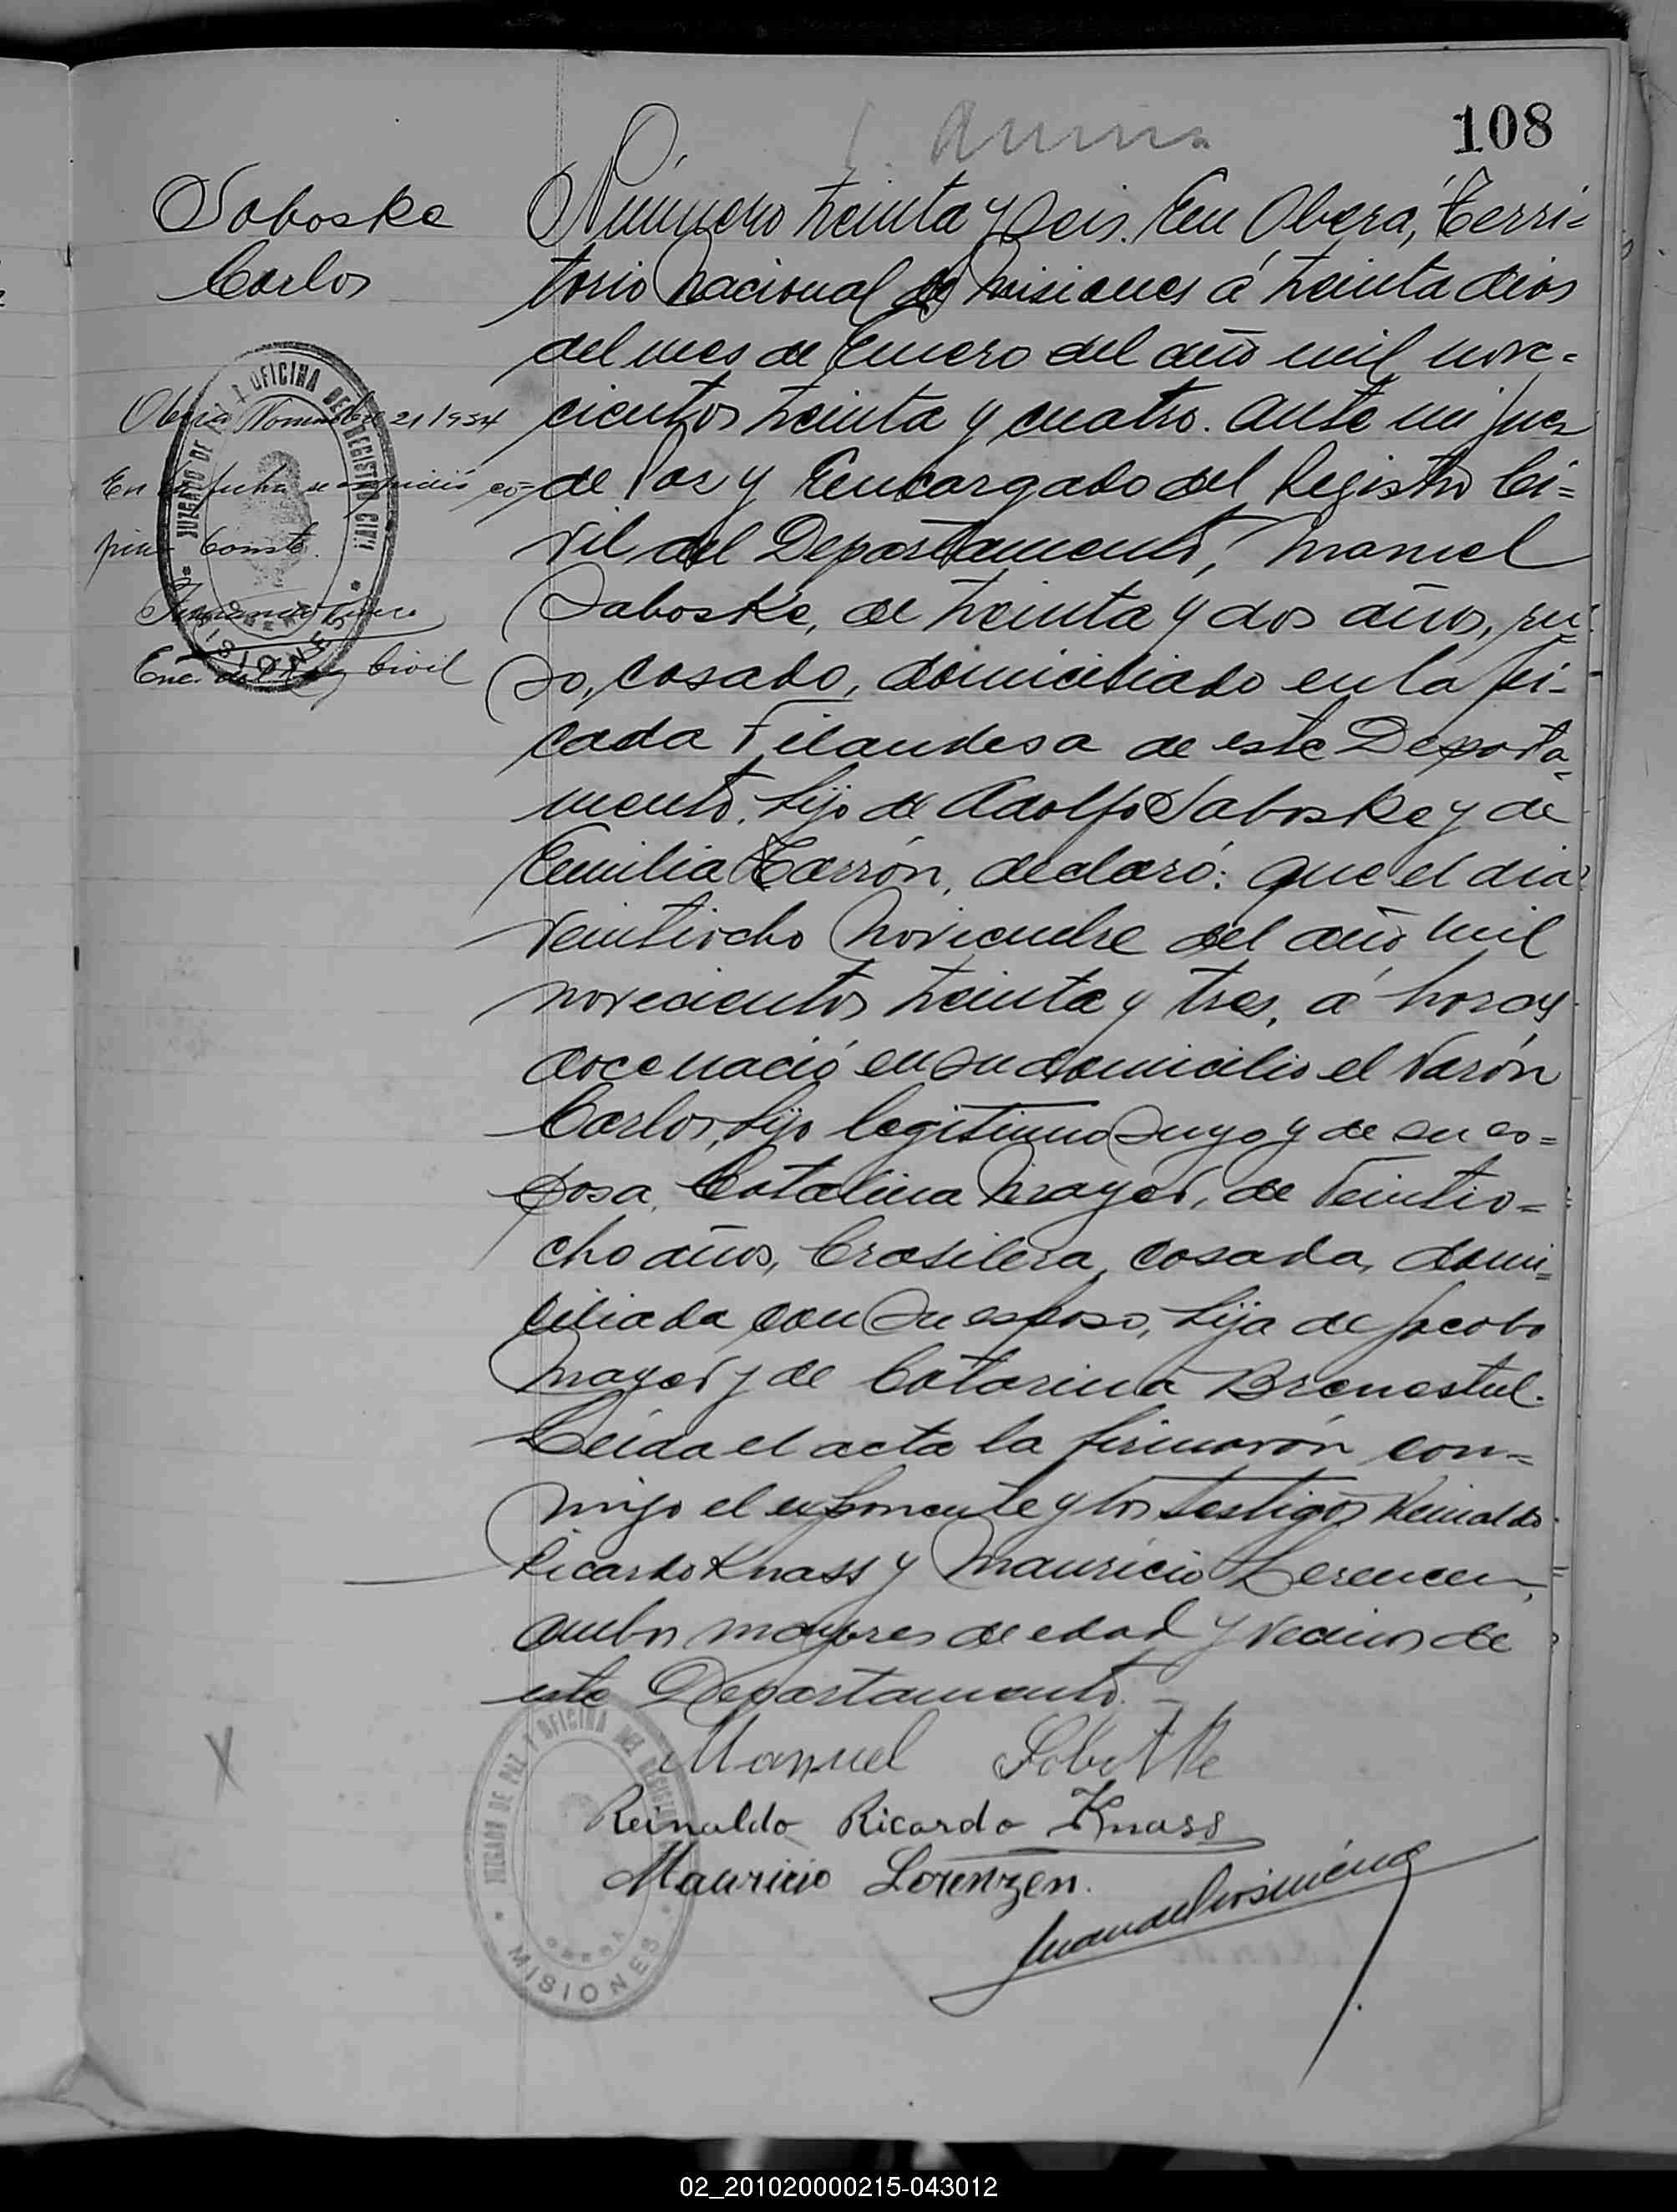 108
Saboske
Carlos
Número treinta y seis. En Oberá, Terri=
torio Nacional de Misiones á treinta dias
del mes de Enero del año mil nove=
cientos treinta y cuatro. Ante mi Juez
de Paz y Encargado del Registro Ci=
vil del Departamento, Manuel
Saboske, de treinta y dos años, ru=
so, casado, domiciliado en la pi=
cada Filandesa de este Departa=
mento, hijo de Adolfo Saboske y de
Emilia Karrón, declaró: que el dia
veintiocho Noviembre del año mil
novecientos treinta y tres, á horas
doce nació en su domicilio el varón
Carlos, hijo legitimo suyo y de su es=
posa, Catalina Mayer, de veintio=
cho años, brasilera, casada, domi=
ciliada con su esposo, hija de Jacobo
Mayer y de Catarina Brenestul.
Leída el acta la firmaron con=
migo el exponente y los testigos Reinaldo
Ricardo Knass y Mauricio Lerencen,
ambos mayores de edad y vecinos de
este Departamento.
Oberá Noviembre 21/934
En la fecha se expidió có=
pia Conste.
Enc. del Reg Civil
JUZGADO DE PAZ Y OFICINA DEL REGISTRO CIVIL
OBERA
MISIONES
Manuel
Reinaldo Ricardo Knass
Mauricio Lorenzen.
JUZGADO DE PAZ Y OFICINA DEL REGISTRO
OBERA
MISIONES
X
02_201020000215-043012